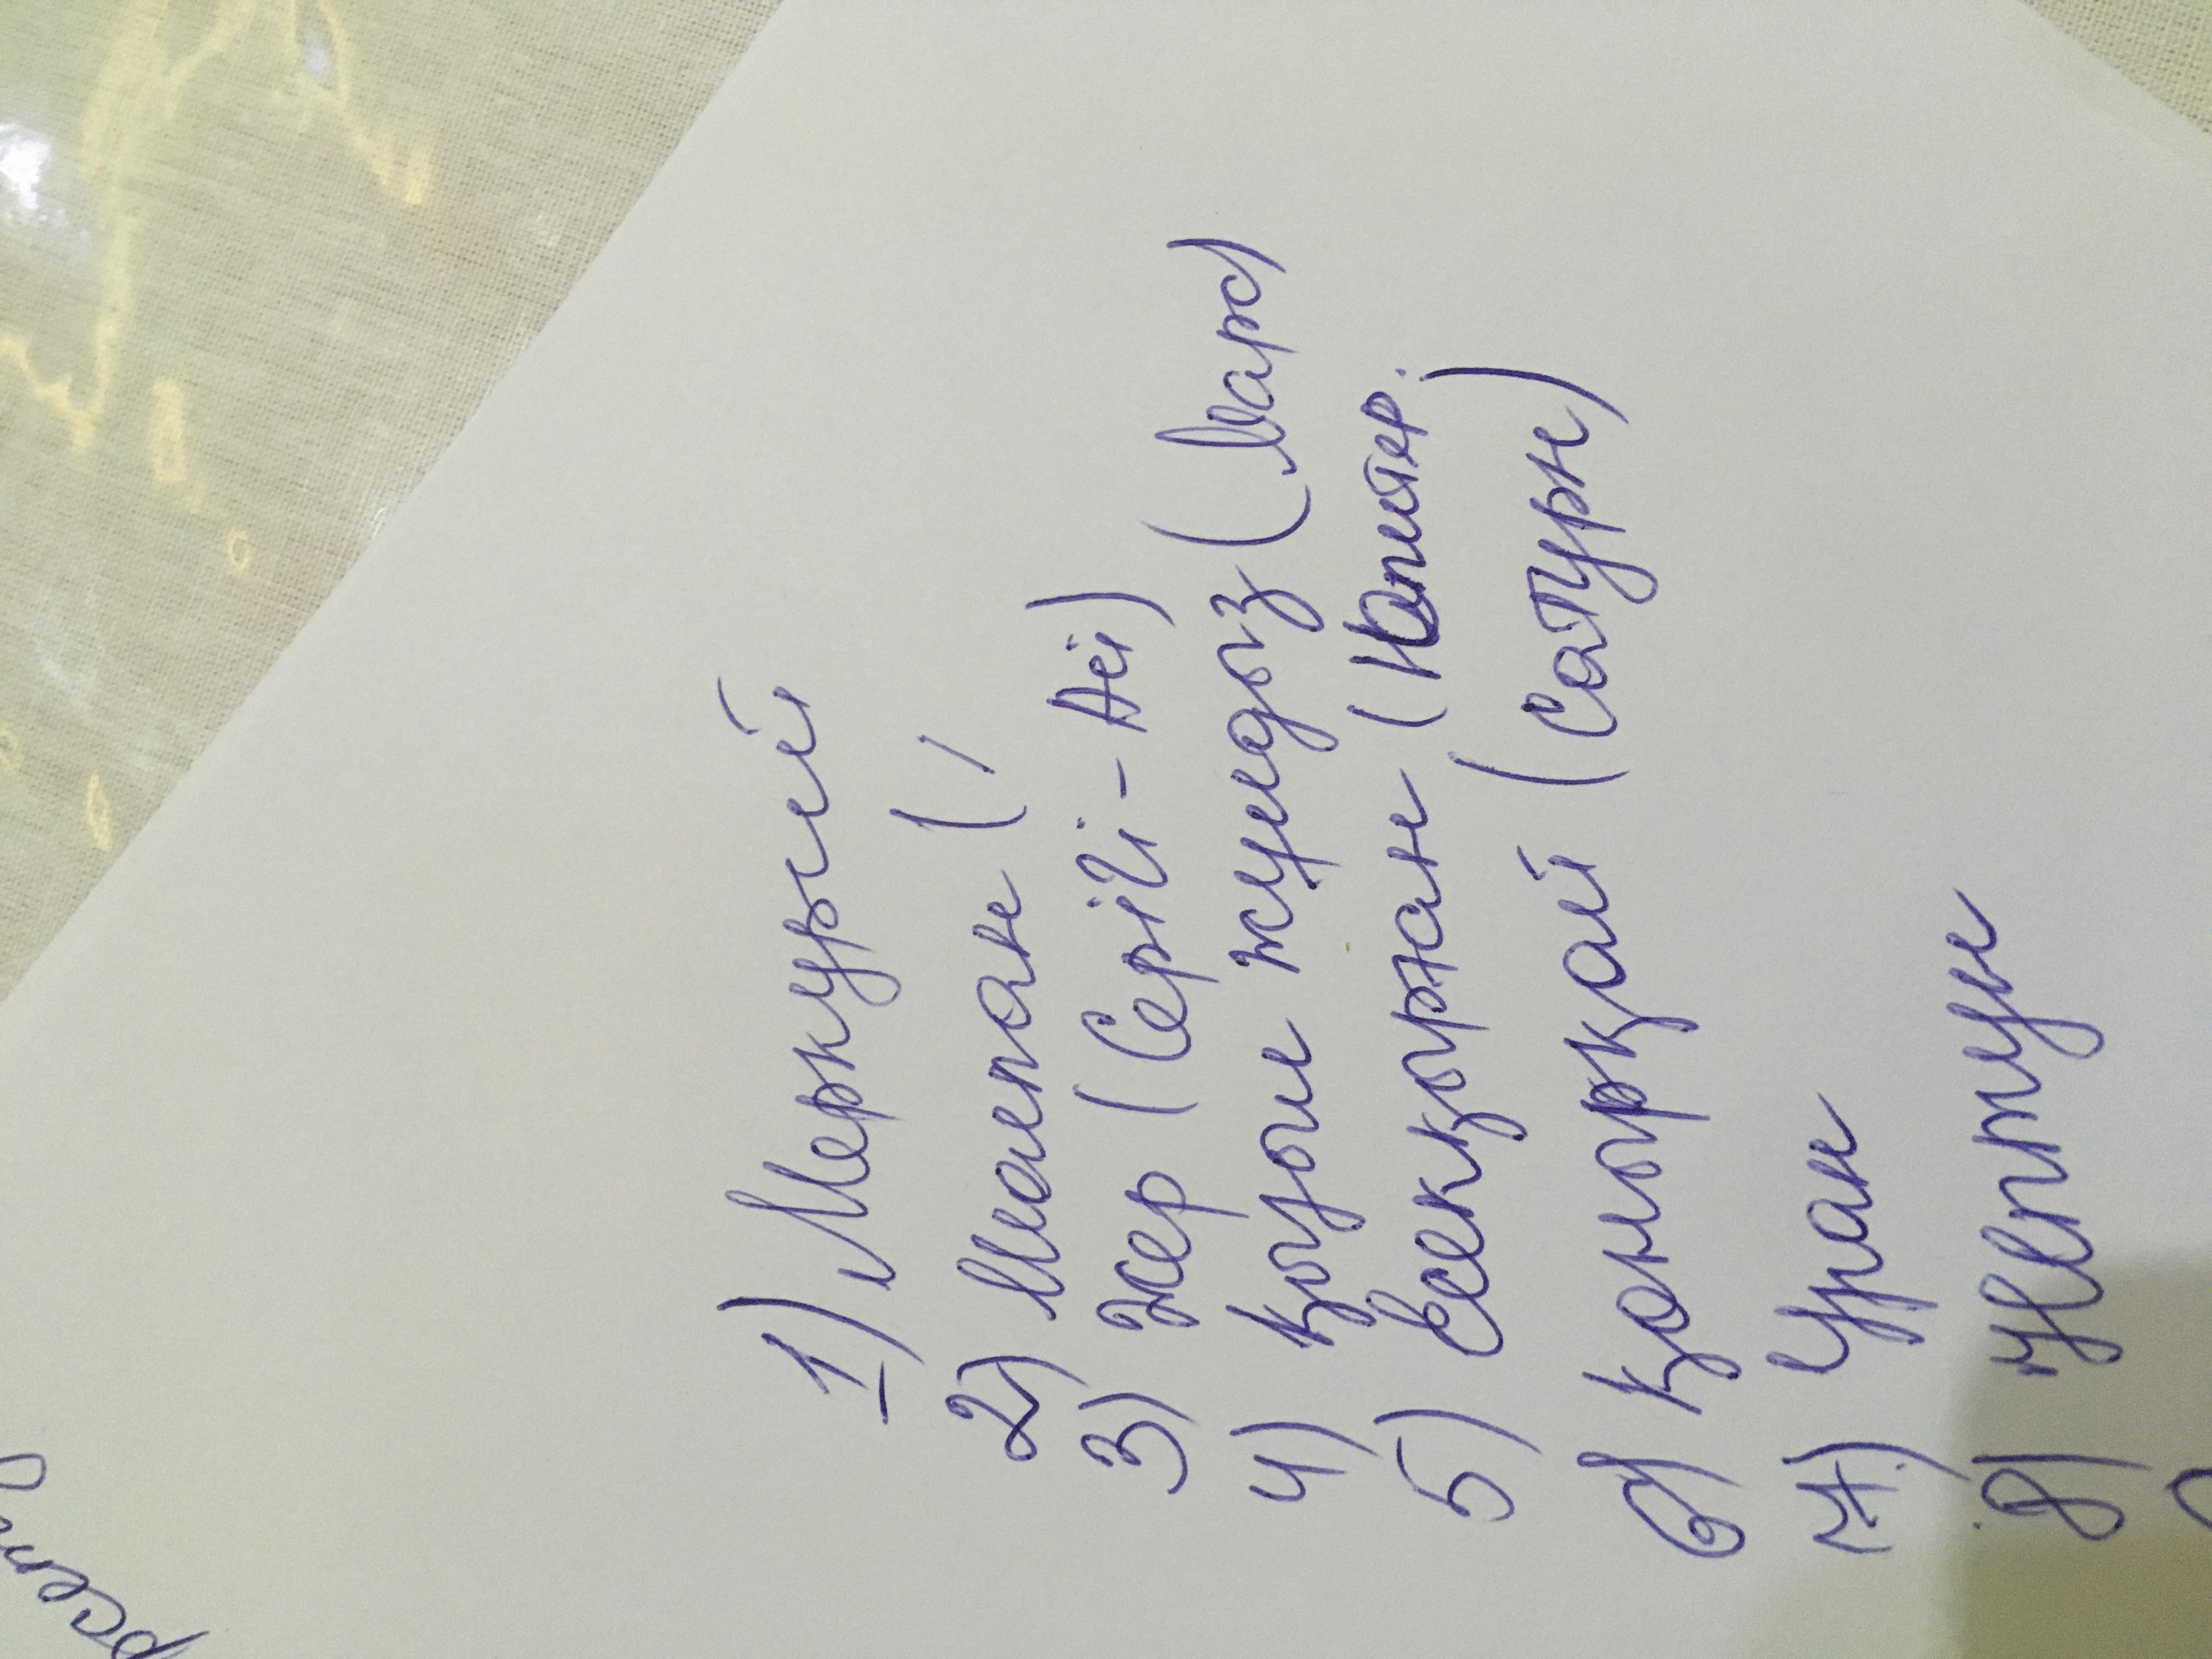 1) Меркурий
2) Шолпан ( /
3) Жер (Серігі - Ай)
4) Қызыл жұлдыз (Марс)
5) Есекқырған (Юпитер.)
6) Қоңырқай (Сатурн)
7) Уран
8) Нептун